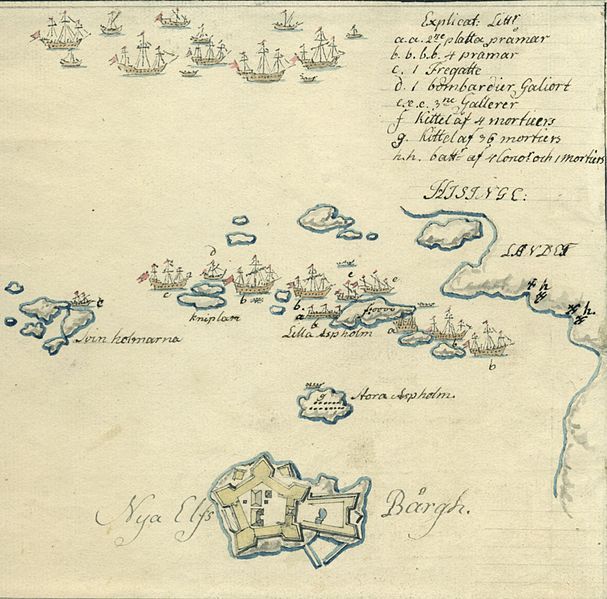 Explicat: Littr
a.a. 2ne platta pråmar
b.b.b.b. 4 pramar
c. 1 Fregatte
d. 1 bombardier Galiort
e.e.e. 3ne Gallerer
f Kittel af 4 mortiers
g. Kittel af 36 mortiers
h.h. battr af 4 Canor och 1 mortiers
HISINGE:
LANDET
d
e
e
c
b
b.
a
b
a
b
b
e
h
h.
kniplan
Lilla Aspholm
Svin holmarna
g
Stora Aspholm.
Nya Elfs Bårgh.